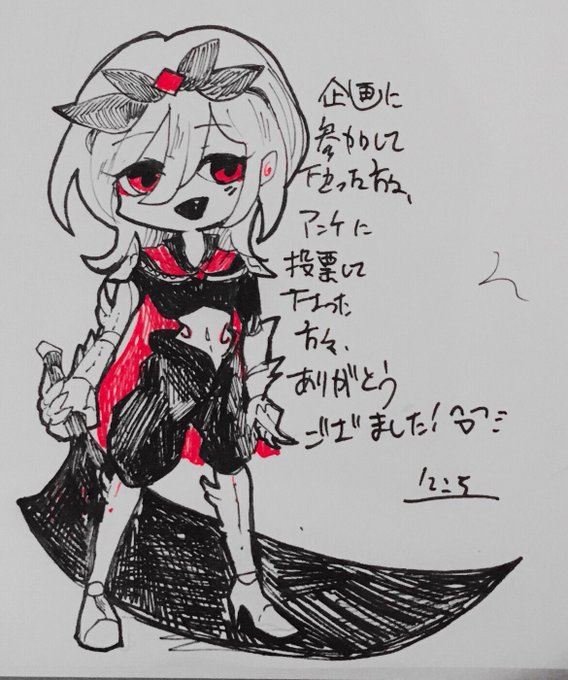 企画に
参加して
下さった方々、
アンケに
投票して
下さった
方々、
ありがとう
ございました!